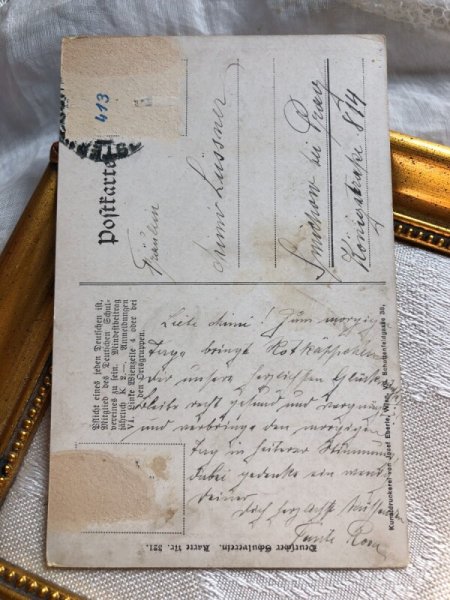 413
Postkarte
Fräulein
Mimi Lüssner
Smichow bei Prag
Königstraße 814
Pflicht eines jeden Deutschen ist,
Mitglied des Deutschen Schul-
vereines zu sein. Mindestbeitrag
jährlich K 2.—. Anmeldungen
VI. Linke Wienzeile 4 oder bei
den Ortsgruppen.
Liebe Mimi! Zum morgigen
Tage bringt Rotkäppchen
Dir unsere herzlichsten Glückw
bleibe recht gesund und vergnügt
und verbringe den morgigen
Tag in heiterer Stimmung
dabei gedenke ein wenig
Deiner
Dich herzlichst küssenden
Tante Rosa
Deutscher Schulverein. Karte Nr. 321.
Kunstdruckerei von Josef Eberle, Wien, VII. Schottenfeldgasse 38.